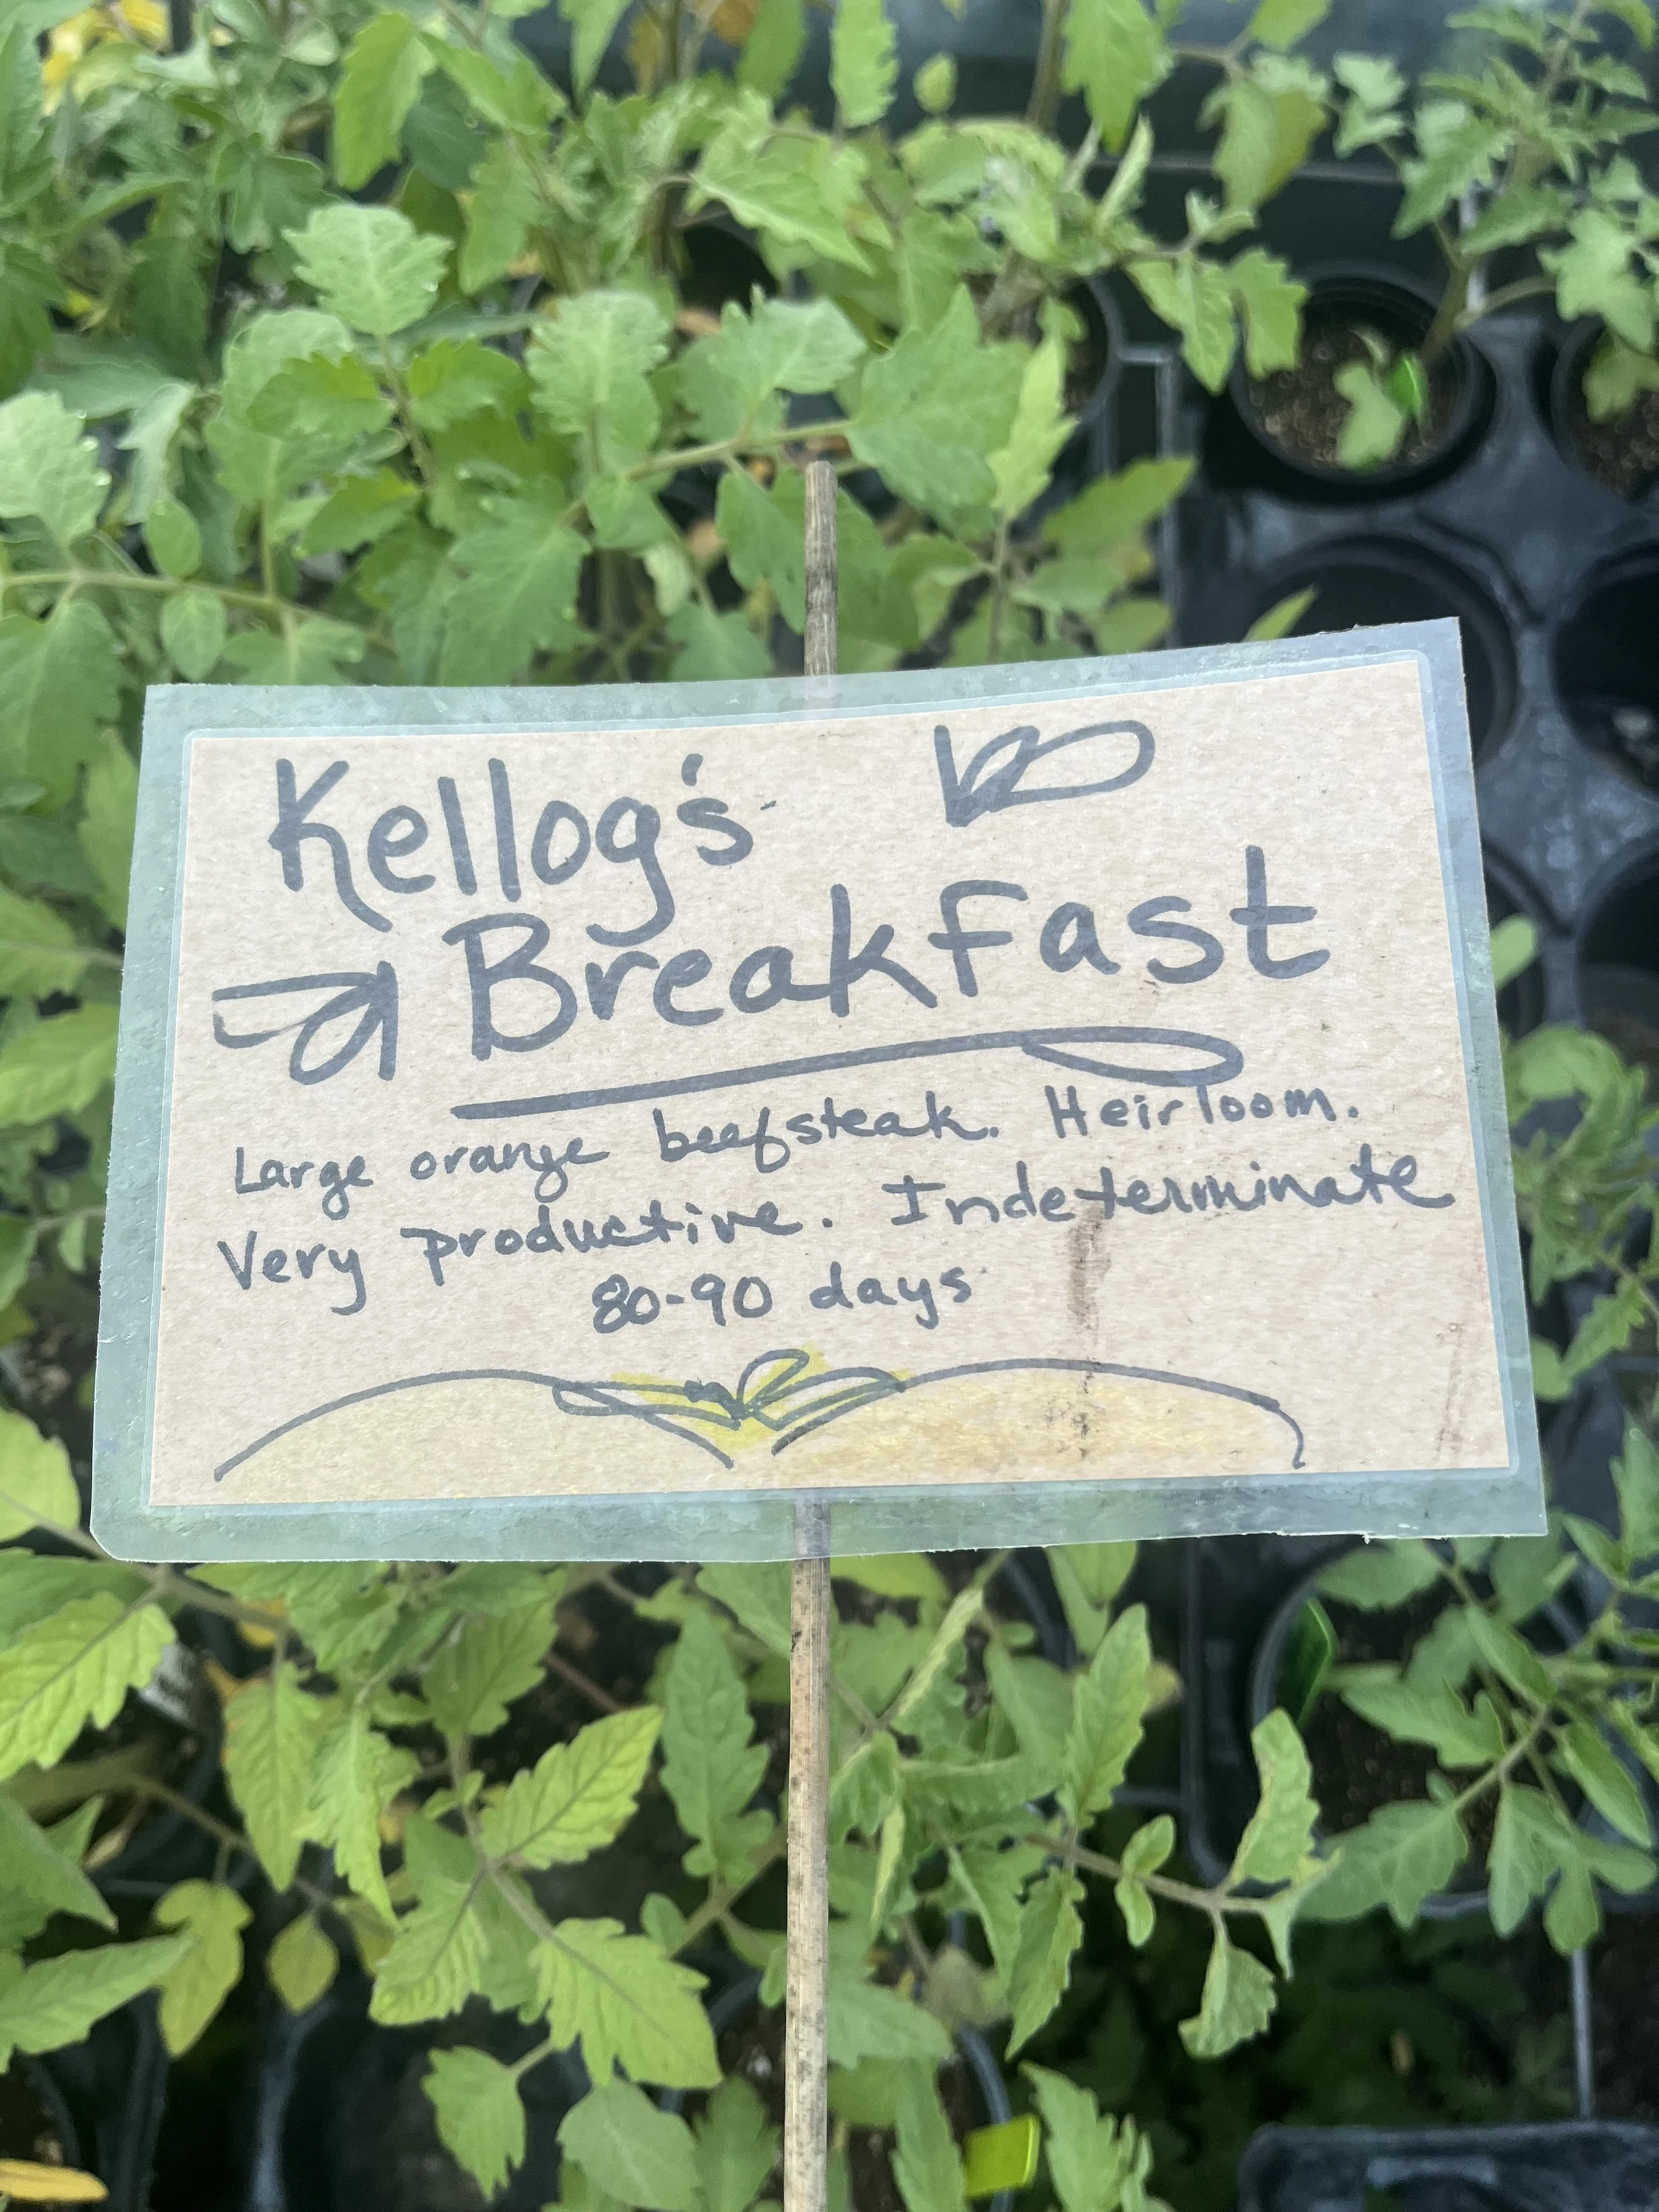 Kellog's
Breakfast
Large orange beefsteak. Heirloom.
Very productive. Indeterminate
80-90 days